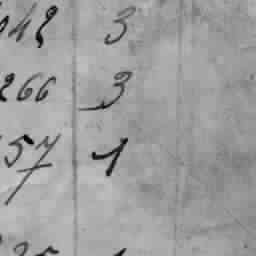 042 3
266 3
57 1